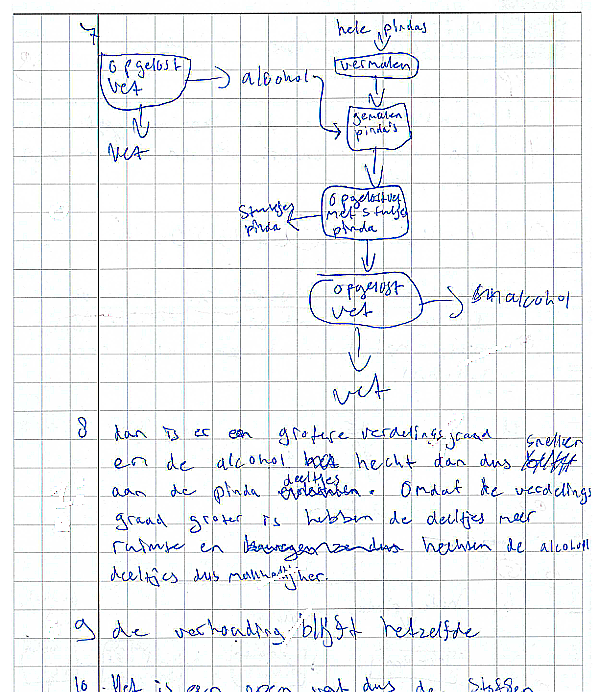 7
hele pindas
vermalen
opgelost
vet
alcohol
gemalen
pinda's
vet
opgelost vet
met stukje
pinda
stukjes
pinda
opgelost
vet
alcohol
vet
8 dan is er een grotere verdelingsgraad
en de alcohol hecht dan dus sneller
aan de pinda deeltjes. Omdat de verdelings
graad groter is hebben de deeltjes meer
ruimte en hechten de alcohol
deeltjes dus makkelijker.
9 de verhouding blijft hetzelfde
10. Het is een dus de stoffen